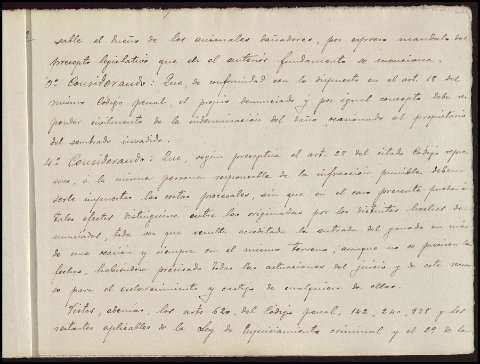 sable el dueño de los animales dañadores, por expreso mandato del
precepto legislativo que en el anterior fundamento se menciona.
3º Considerando: Que, de conformidad con lo dispuesto en el art. 18 del
mismo Código penal, el propio denunciado y por igual concepto debe res
ponder civilmente de la indemnización del daño ocasionado al propietario
del sembrado invadido.
4º Considerando: Que, según preceptúa el art. 28 del citado Código
á la misma persona responsable de la infracción punible deben
serle impuestas las costas procesales, sin que en el caso presente puedan á
tales efectos distinguirse entre las originadas por los distintos hechos de
nunciados, toda vez que resulta acreditada la entrada del ganado en más
de una ocasión y siempre en el mismo terreno, aunque no se precisen las
fechas, habiéndose precisado todas las actuaciones del juicio y de este recur
so para el esclarecimiento y castigo de cualquiera de ellos.
Vistos, además, los arts 620, del Código penal, 142, 240, y los
restantes aplicables de la Ley de Enjuiciamiento criminal y el 2º de la